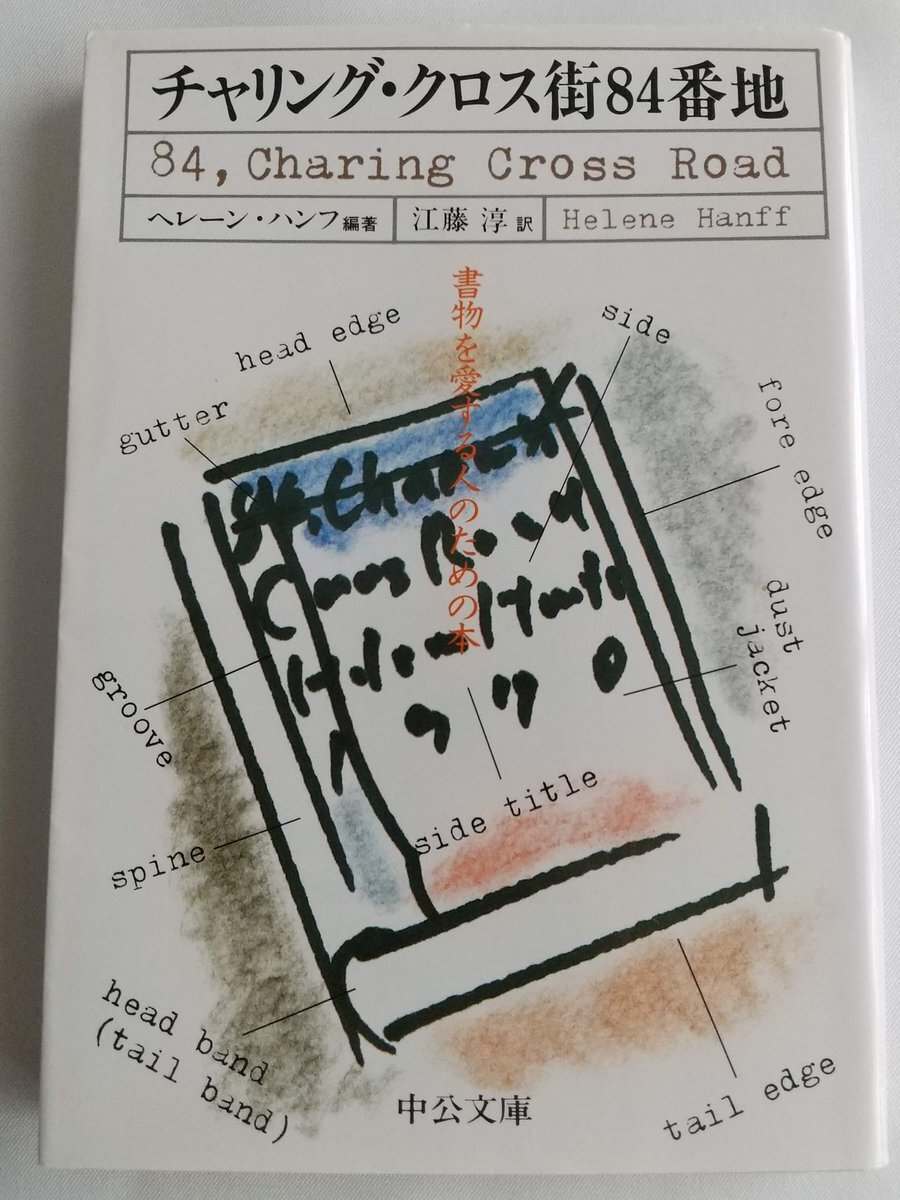 チャリング・クロス街84番地
84, Charing Cross Road
ヘレーン・ハンフ編著
江藤 淳 訳
Helene Hanff
書物を愛する人のための本
head edge
side
gutter
fore edge
dust
jacket
groove
side title
spine
head band
(tail band)
tail edge
中公文庫